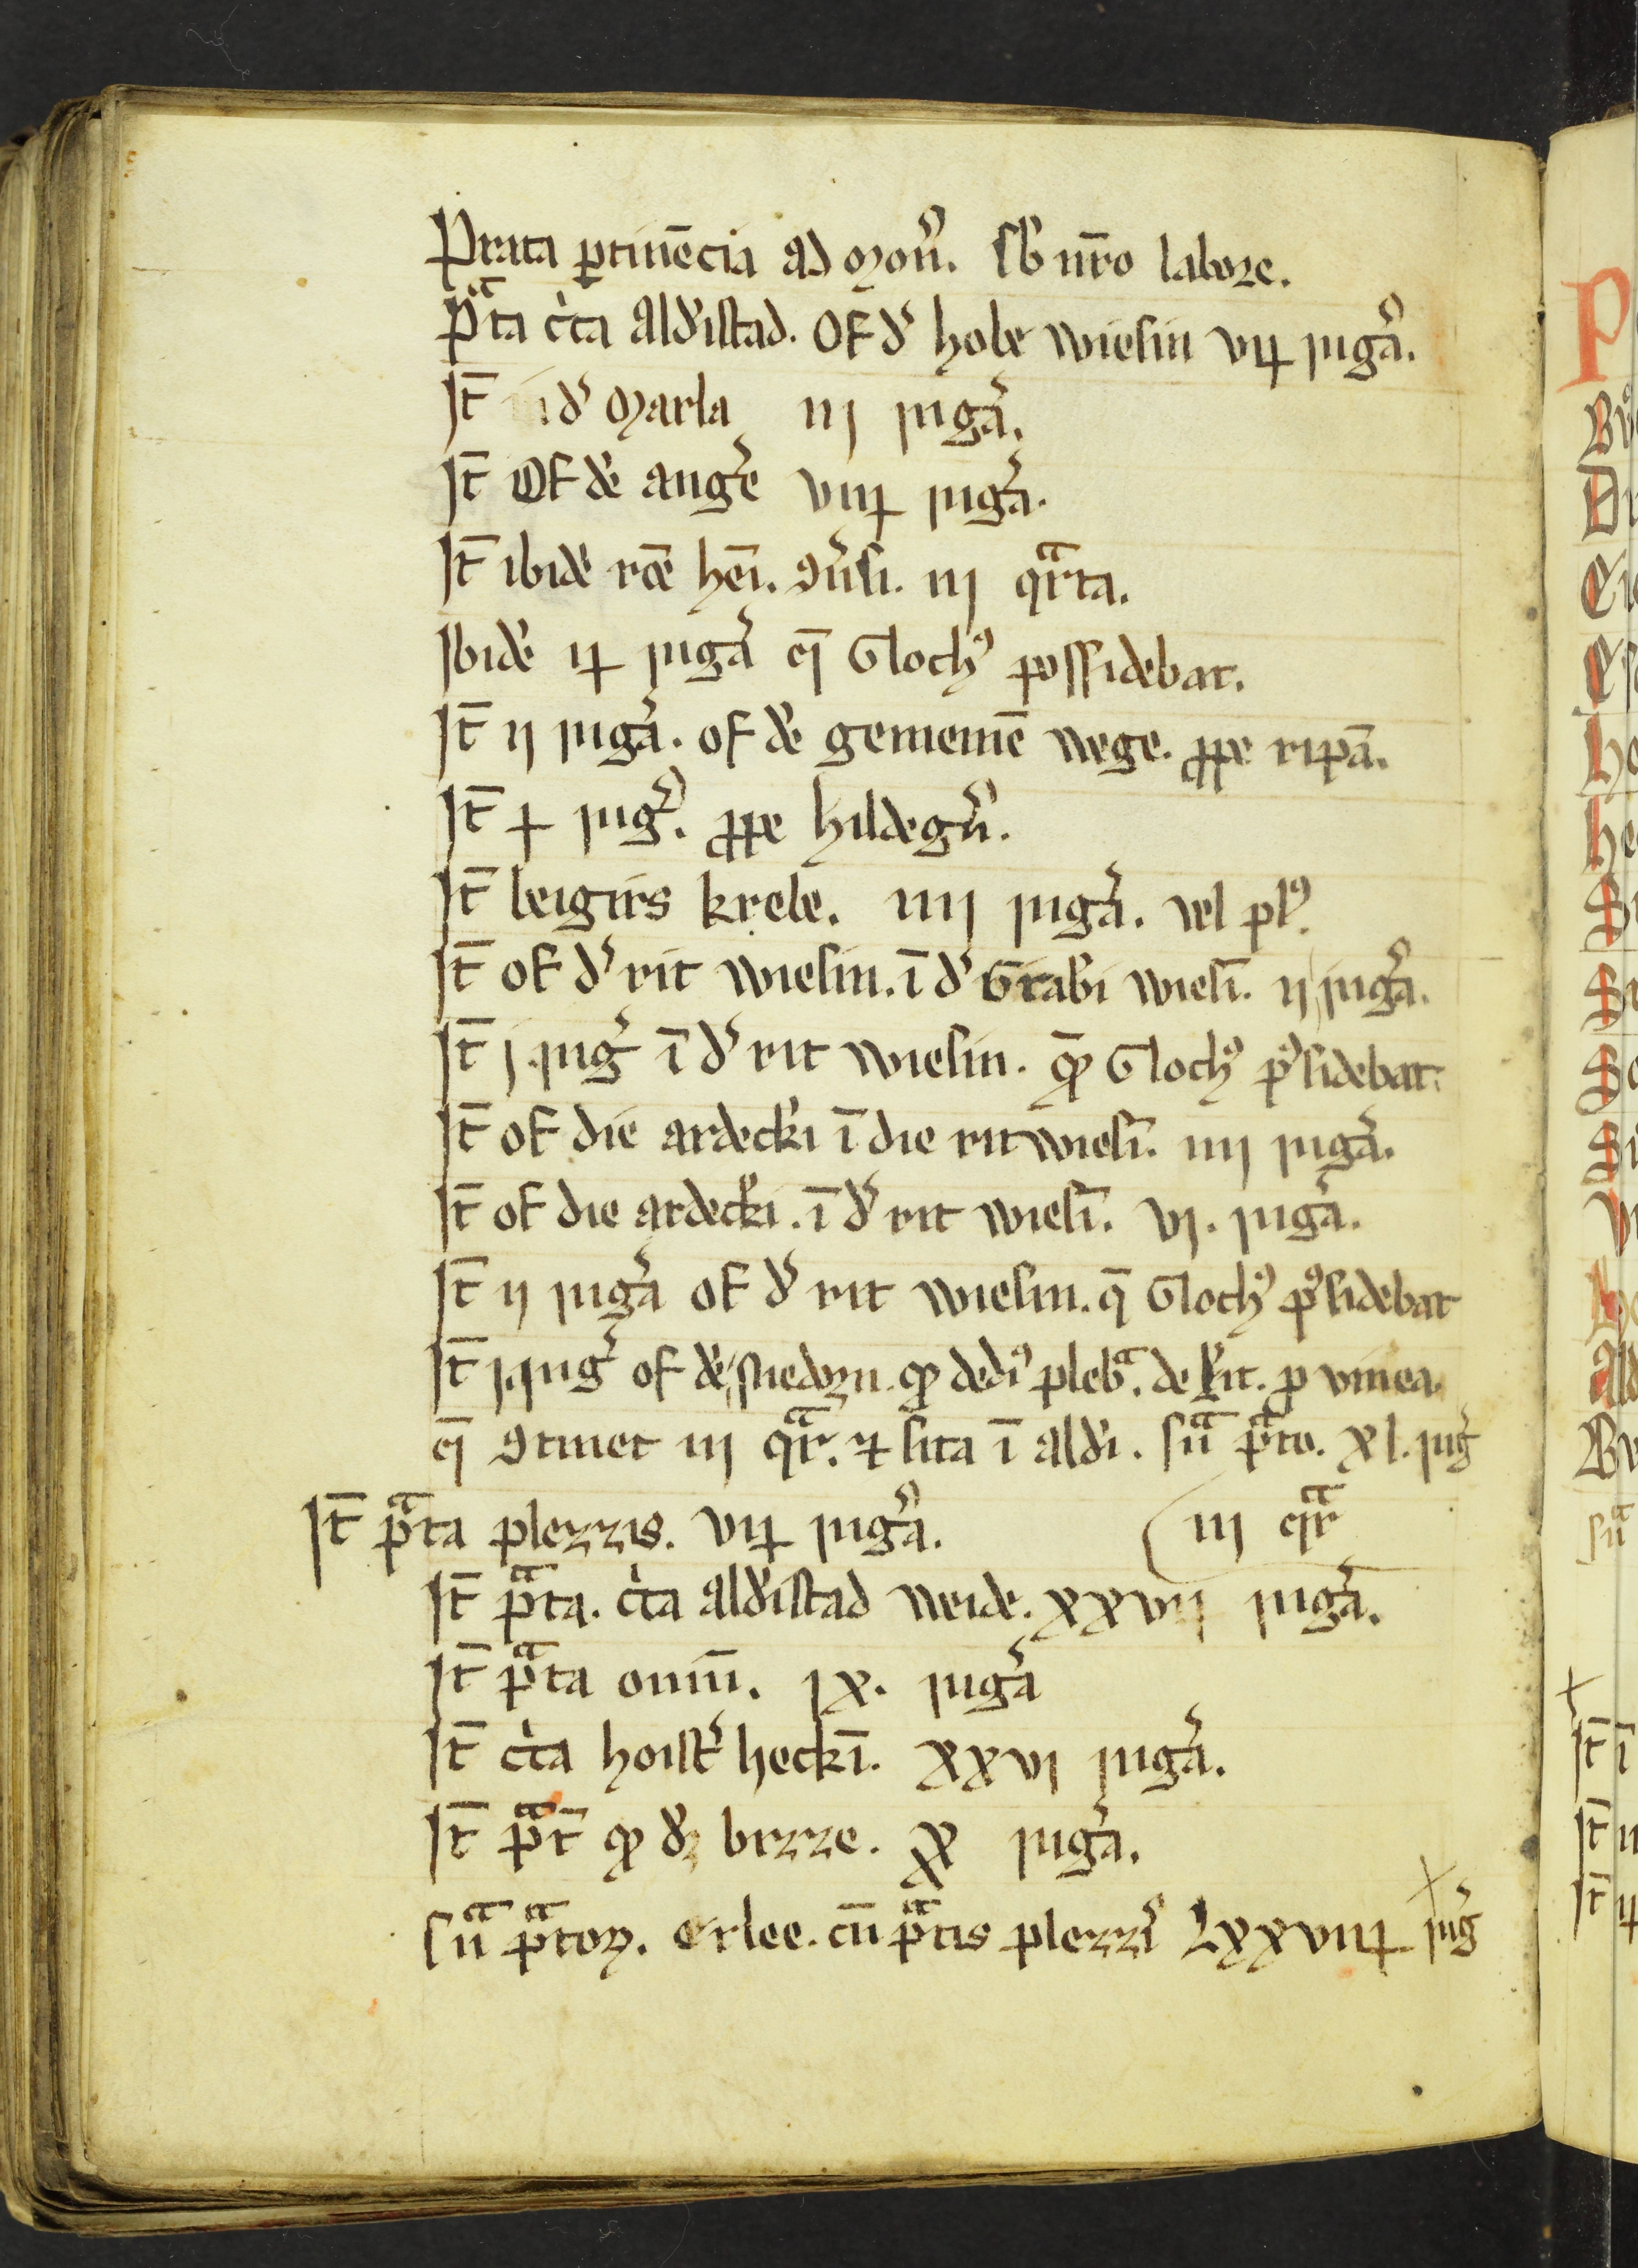 Prata ptinēcia ad mon̄. sb nr̄o labore.
pᵃta cͥta aldistad. Of d' hobe wiesin vij iug'a.
It̄ i d' marla iij iug'a.
It̄ Of dē ang'e viij iug'a.
It̄ ibidē rōe hen̄. 9u'si. iij qᵃrta.
Ibidē ij iug'a q̄ Gloch⁹ possidebat.
It̄ ij iug'a. of dē gemeinē wege. ꝓpe ripā.
It̄ j iug'. ꝓpe hildegu'.
It̄ beigirs krebe. iiij iug'a. vel pl⁹.
It̄ of d' rit wiesin. ī d' Grabi wiesī. ij iug'a.
It̄ j. iug' ī d' rit wiesin. qd Gloch⁹ p⁹sidebat.
It̄ of die ardecki ī die rit wiesī. iiij iug'a.
It̄ of die ardecki. ī d' rit wiesī. vj. iug'a.
It̄ ij iug'a of d' rit wiesin. q̄ Gloch⁹ p⁹sidebat
It̄ j. iug' of dē qd ded⁹ plebᵃ. de kit. p vinea
q̄ 9tinet iij qᵃr. ⁊ sita ī aldi. sūᵃ pᵃto. xl. iug'
It̄ pᵃta plezzis. vij iug'a. iij qᵃr
It̄ pᵃta. cͥta aldistad weide. xxvij iug'a.
It̄ pᵃta oniū. ix. iug'a
It̄ cͥta hoist' heckī. xxvj iug'a.
It̄ pᵃt̄ qd dꝫ brzze. x iug'a.
sūᵃ pᵃtoꝝ. erlee. cū pᵃtis plezzī Lxxviij iug'
P